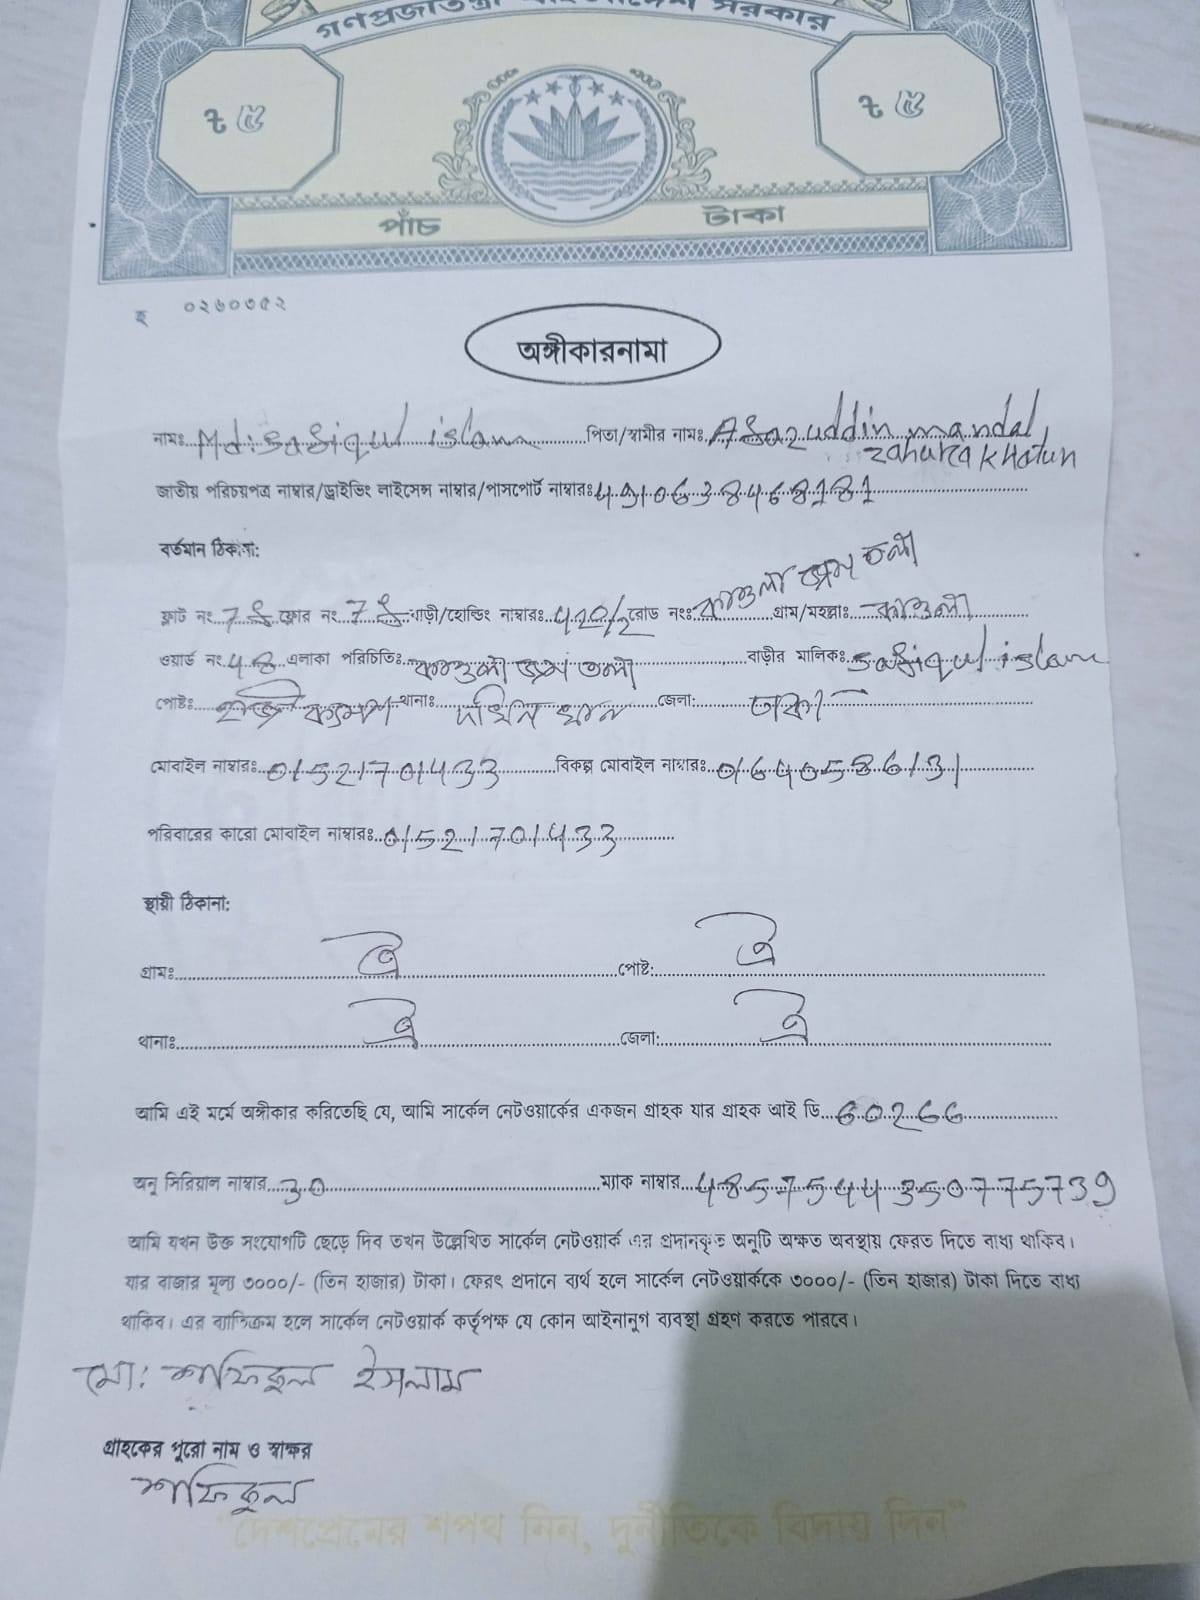 গণপ্রজাতন্ত্রী বাংলাদেশ সরকার
৳ ৫ ৳ ৫
পাঁচ টাকা
হ ০২৬০৩৫২
অঙ্গীকারনামা
নামঃ Md: safiqul islam পিতা/স্বামীর নামঃ Afazuddin mandal,
zahura khatun
জাতীয় পরিচয়পত্র নাম্বার/ড্রাইভিং লাইসেন্স নাম্বার/পাসপোর্ট নাম্বারঃ
বর্তমান ঠিকানা:
ফ্লাট নং ফ্লোর নং বাড়ী/হোল্ডিং নাম্বারঃ 420/2 রোড নংঃ গ্রাম/মহল্লাঃ কাওলা
ওয়ার্ড নং এলাকা পরিচিতিঃ বাড়ীর মালিকঃ safiqul islam
পোষ্টঃ থানাঃ দক্ষিন খান জেলা: ঢাকা
মোবাইল নাম্বারঃ 01521701433 বিকল্প মোবাইল নাম্বারঃ
পরিবারের কারো মোবাইল নাম্বারঃ 01521701433
স্থায়ী ঠিকানা:
গ্রামঃ ঐ পোষ্ট: ঐ
থানাঃ ঐ জেলা: ঐ
আমি এই মর্মে অঙ্গীকার করিতেছি যে, আমি সার্কেল নেটওয়ার্কের একজন গ্রাহক যার গ্রাহক আই ডি 60266
অনু সিরিয়াল নাম্বার 30 ম্যাক নাম্বার 4857544350775739
আমি যখন উক্ত সংযোগটি ছেড়ে দিব তখন উল্লেখিত সার্কেল নেটওয়ার্ক এর প্রদানকৃত অনুটি অক্ষত অবস্থায় ফেরত দিতে বাধ্য থাকিব।
যার বাজার মূল্য ৩০০০/- (তিন হাজার) টাকা। ফেরৎ প্রদানে ব্যর্থ হলে সার্কেল নেটওয়ার্ককে ৩০০০/- (তিন হাজার) টাকা দিতে বাধ্য
থাকিব। এর ব্যাতিক্রম হলে সার্কেল নেটওয়ার্ক কর্তৃপক্ষ যে কোন আইনানুগ ব্যবস্থা গ্রহণ করতে পারবে।
মো: শফিকুল ইসলাম
গ্রাহকের পুরো নাম ও স্বাক্ষর
শফিকুল
"দেশপ্রেমের শপথ নিন, দুর্নীতিকে বিদায় দিন"